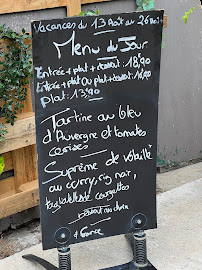 Vacances du 13 Août au 26 Août
Menu du Jour
Entrée + plat + dessert : 18,90
Entrée + plat ou plat + dessert :
Plat : 13,90
Tartine au bleu
d'Auvergne et tomates
cerises
Suprême de volaille
au curry, riz noir,
courgettes
Dessert au choix